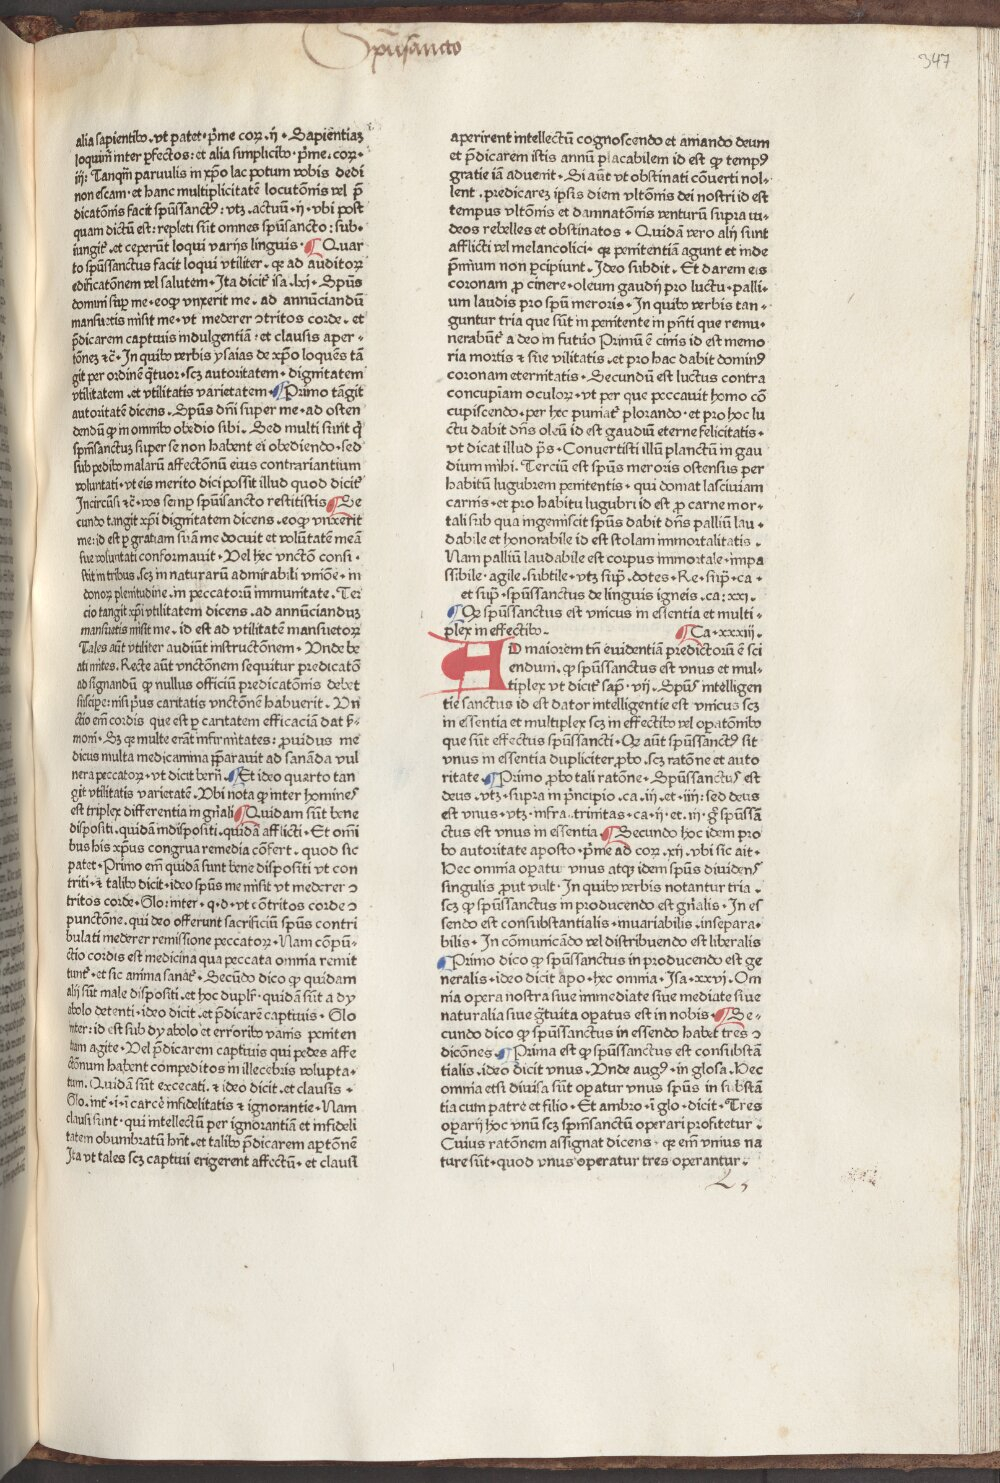 Spūsancto
347
alia sapientibꝰ. vt patet. p̄me corꝝ. ij. Sapientiaꝫ
loquim̄ inter ꝑfectos: et alia simplicibꝰ. p̄me. corꝝ.
iij: Tanqm̄ paruulis in xp̄o lac potum vobis dedi
non escam. et hanc multiplicitatē locutōnis vel p̄
dicatōnis facit spūssanctꝰ: vtꝫ. actuū. ij. vbi post
quam dictū est: repleti sūt omnes spūsancto: sub-
iungit̉. et ceperūt loqui varijs linguis. Quar
to spūssanctus facit loqui vtiliter. qꝛ ad auditoꝝ
edificatōnem vel salutem. Ita dicit̉ isa. lxi. Spūs
domini suꝑ me. eoqꝫ vnxerit me. ad annūciandū
mansuetis misit me. vt mederer ↄtritos corde. et
p̄dicarem captiuis indulgentiā. et clausis aper-
tōneꝫ ⁊c̄. In quibꝰ verbis ysaias de xp̄o loquēs tā
git per ordinē q̄tuor. scꝫ autoritatem. dignitatem
vtilitatem. et vtilitatis varietatem. Primo tāgit
autoritatē dicens. Spūs dn̄i super me. ad osten
dendū ꝙ in omnibꝰ obedio sibi. Sed multi sunt q̄
spm̄sanctuꝫ super se non habent ei obediendo. sed
sub pedibꝰ malarū affectōnū eius contrariantium
voluntati. vt eis merito dici possit illud quod dicit̉
Incircūsi ⁊c̄. vos semꝑ spūisancto restitistis Se
cundo tangit xp̄i dignitatem dicens. eoqꝫ vnxerit
me: id est ꝑ gratiam suā me docuit et volūtatē meā
sue voluntati conformauit. Vel hec vnctōn consi-
stit in tribus. scꝫ in naturarū admirabili vniōne. in
donoꝝ plenitudine. in peccatorū immunitate. Ter
cio tangit xp̄i vtilitatem dicens. ad annūcianduꝫ
mansuetis misit me. id est ad vtilitatē mansuetoꝝ
Tales aūt vtiliter audiūt instructōnem. Vnde be
ati mites. Recte aūt vnctōnem sequitur predicatō
ad signandū ꝙ nullus officiū predicatōnis debet
suscipe: nisi pus caritatis vnctōnē habuerit. Vn
ctio em̄ cordis que est ꝑ caritatem efficaciā dat ẜ-
moni. Sꝫ qꝛ multe erāt infirmitates: ꝓuidus me
dicus multa medicamina p̄parauit ad sanāda vul
nera peccatoꝝ. vt dicit bern̄. Et ideo quarto tan
git vtilitatis varietatē. Vbi nota ꝙ inter homines
est triplex differentia in gn̄ali Quidam sūt bene
dispositi. quidā indispositi. quidā afflicti. Et omni
bus his xp̄us congrua remedia cōfert. quod sic
patet. Primo em̄ quidā sunt bene dispositi vt con
triti. ⁊ talibꝰ dicit. ideo spūs me misit vt mederer ↄ
tritos corde. Glo: inter. q. d. vt cōtritos corde ↄ
punctōne. qui deo offerunt sacrificiū spūs contri
bulati mederer remissione peccatoꝝ. Nam cōpū-
ctio cordis est medicina qua peccata omnia remit
tunt̉. et sic anima sanat̉. Secūdo dico ꝙ quidam
alij sūt male dispositi. et hoc dupl̉r. quidā sūt a dy
abolo detenti. ideo dicit. et p̄dicarē captiuis. Glo
inter: id est sub dyabolo et erroribꝰ vanis peniten
tiam agite. Vel p̄dicarem captiuis qui pedes affe
ctōnum habent compeditos in illecebris volupta-
tum. Quidā sūt excecati. ⁊ ideo dicit. et clausis.
Glo. int̉. i. i carcē infidelitatis ⁊ ignorantie. Nam
clausi sunt. qui intellectū per ignorantiā et infideli
tatem obumbratū hn̄t. et talibꝰ p̄dicarem aꝑtōnē
Ita vt tales scꝫ captiui erigerent affectū. et clausi
aperirent intellectū cognoscendo et amando deum
et p̄dicarem istis annū placabilem id est ꝙ tempꝰ
gratie iā aduenit. Si aūt vt obstinati cōuerti nol-
lent. predicareꝫ ipsis diem vltōnis dei nostri id est
tempus vltōnis et damnatōnis venturū supra iu-
deos rebelles et obstinatos. Quidā vero alij sunt
afflicti vel melancolici. qꝛ penitentiā agunt et inde
p̄mium non ꝑcipiunt. Ideo subdit. Et darem eis
coronam ꝓ cinere. oleum gaudij pro luctu. palli-
um laudis pro spū meroris. In quibꝰ verbis tan-
guntur tria que sūt in penitente in pn̄ti que remu-
nerabūt̉ a deo in futuo Primū ē cinis id est memo
ria mortis ⁊ sue vilitatis. et pro hac dabit dominꝰ
coronam eternitatis. Secundū est luctus contra
concupiam oculoꝝ. vt per que peccauit homo cō
cupiscendo. per hec puniat̉ plorando. et pro hoc lu
ctu dabit dn̄s oleū id est gaudiū eterne felicitatis.
vt dicat illud p̄s. Conuertisti illū planctū in gau
dium mihi. Terciū est spūs meroris ostensus per
habitū lugubrem penitentis. qui domat lasciuiam
carnis. et pro habitu lugubri id est ꝓ carne mor-
tali sub qua ingemiscit spūs dabit dn̄s palliū lau-
dabile et honorabile id est stolam immortalitatis.
Nam palliū laudabile est corpus immortale. impa
ssibile. agile. subtile. vtꝫ sup̄. dotes. Re. sup̄. ca.
et sup̄. spūssanctus de linguis igneis. ca: xxi.
Qꝛ spūssanctus est vnicus in essentia et multi-
plex in effectibꝰ. Ca. xxxiij.
AD maiorem tn̄ euidentiā predictorū ē sci
endum. ꝙ spūssanctus est vnus et mul-
tiplex vt dicit̉ sap̄. vij. Spūs intelligen
tie sanctus id est dator intelligentie est vnicus scꝫ
in essentia et multiplex scꝫ in effectibꝰ vel oꝑatōnibꝰ
que sūt effectus spūssancti. Qꝛ aūt spūssanctꝰ sit
vnus in essentia dupliciter ꝓbo. scꝫ ratōne et auto
ritate. Primo ꝓbo tali ratōne. Spūssanctus est
deus. vtꝫ. supra in p̄ncipio. ca. iij. et. iiij: sed deus
est vnus. vtꝫ. infra. trinitas. ca. ij. et. iij. g̊ spūssā
ctus est vnus in essentia. Secundo hoc idem pro
bo autoritate aposto. p̄me ad corꝝ. xij. vbi sic ait.
Hec omnia oꝑatur vnus atqꝫ idem spūs diuidens
singulis ꝓut vult. In quibꝰ verbis notantur tria.
scꝫ ꝙ spūssanctus in producendo est gn̄alis. In es
sendo est consubstantialis. inuariabilis. insepara-
bilis. In cōmunicādo vel distribuendo est liberalis
Primo dico ꝙ spūssanctus in producendo est ge
neralis. ideo dicit apo. hec omnia. Isa. xxvi. Om
nia opera nostra siue immediate siue mediate siue
naturalia siue gtuita oꝑatus est in nobis. Se-
cundo dico ꝙ spūssanctus in essendo habet tres ↄ
dicōnes. Prima est ꝙ spūssanctus est consubstā
tialis. ideo dicit vnus. Vnde augꝰ. in glosa. Hec
omnia etsi diuisa sunt oꝑatur vnus spūs in substā
tia cum patre et filio. Et ambro. ī glo. dicit. Tres
oꝑarij hoc vnū scꝫ spm̄sanctū operari profitetur.
Cuius ratōnem assignat dicens. qꝛ em̄ vnius na
ture sūt. quod vnus operatur tres operantur.